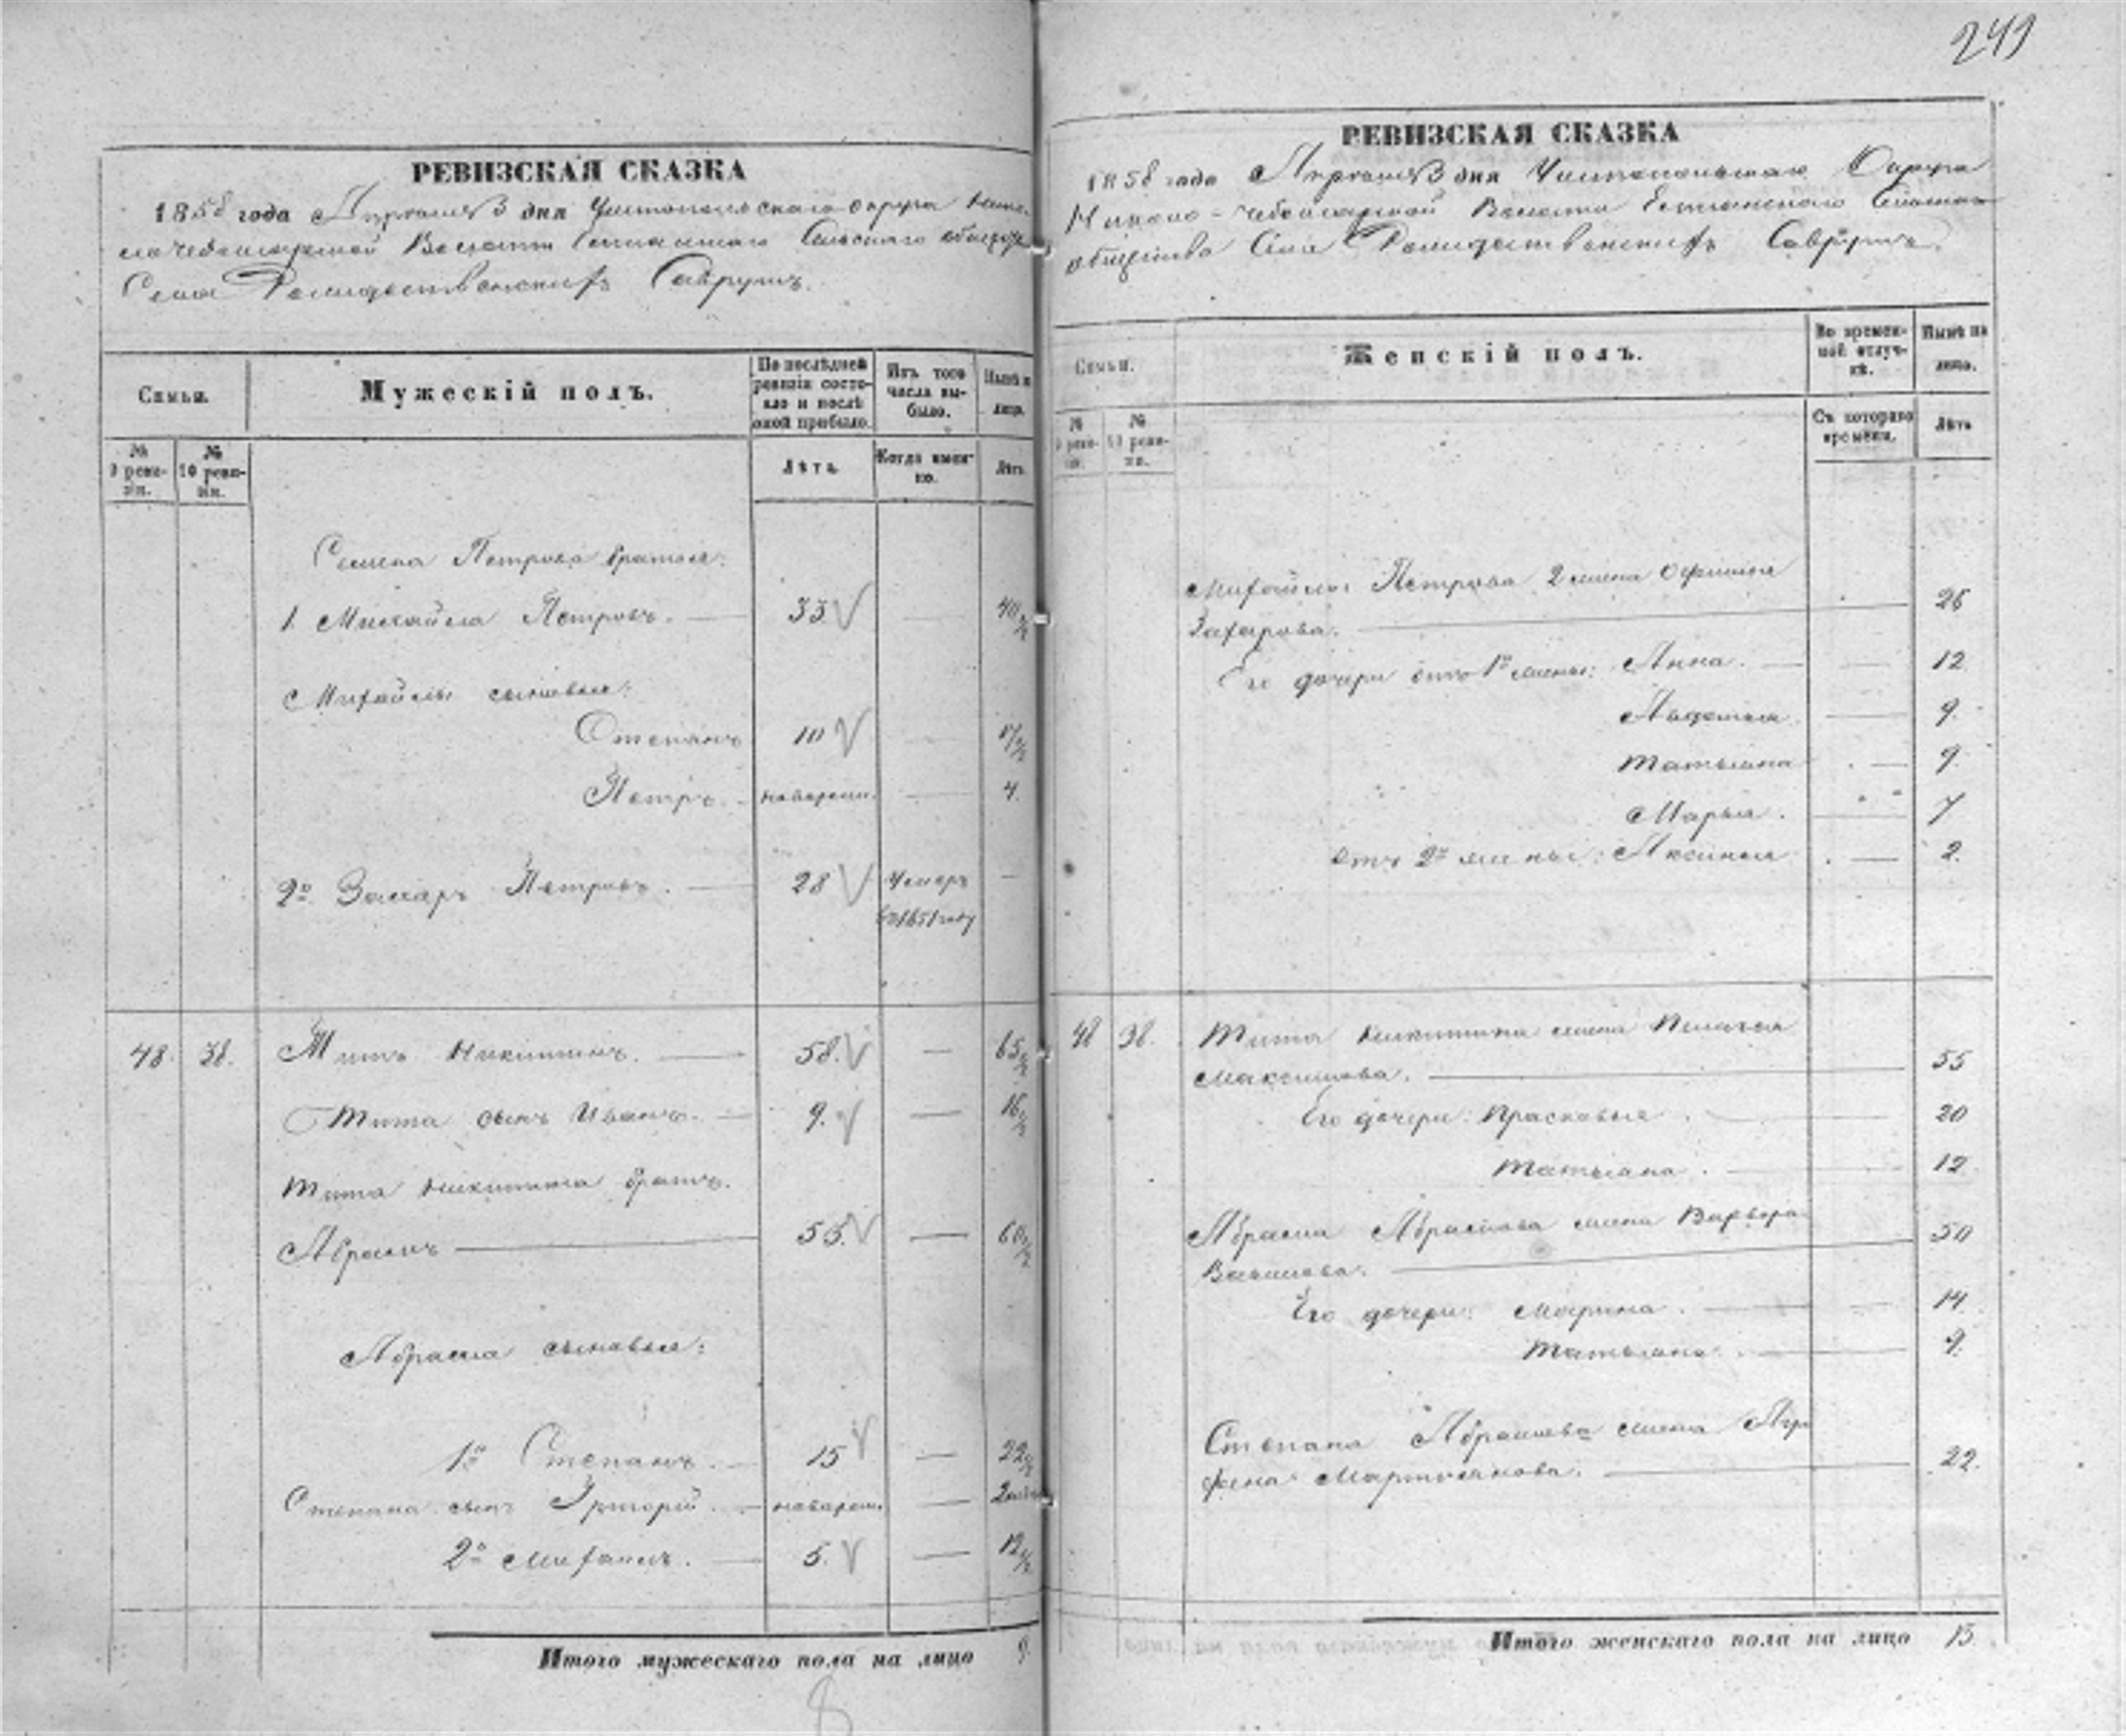 241
РЕВИЗСКАЯ СКАЗКА
1858 года Апреля 3 дня Чистопольскаго округа
Волости Сельскаго общества
Села Рождественскихъ Саврушъ.
Семьи.
Мужескій полъ.
По послѣдней ревизіи состояло и послѣ оной прибыло.
Изъ того числа выбыло.
Нынѣ на лицо.
№ 9 ревизіи.
№ 10 ревизіи.
Лѣта.
Когда именно.
Лѣта.
Семена Петрова братья:
1. Михайла Петровъ. 33 40
Михайлы сыновья:
Степанъ 10 17
Петръ новорож. 4.
2й Захаръ Петровъ. 28 Умеръ
въ 1851 году
48. 38. Титъ Никитинъ. 58. 65
Тита сынъ Иванъ. 9. 16
Тита Никитина братъ.
Абрамъ 53. 60
Абрама сыновья:
1й Степанъ. 15 22
Степана сынъ Григорій новорож.
2й Михаилъ. 5. 12
Итого мужескаго пола на лицо 9.
8
РЕВИЗСКАЯ СКАЗКА
1858 года Апреля 3 дня Чистопольскаго Округа
Волости
общества Села Рождественскихъ Саврушъ.
Семьи.
Женскій полъ.
Во временной отлучкѣ.
Нынѣ на лицо.
№ 9 ревизіи.
№ 10 ревизіи.
Съ котораго времени.
Лѣта
Михайлы Петрова 2 жена Офимья
Захарова. 26
Его дочери отъ 1й жены: Анна. 12
Авдотья. 9.
Татьяна 9.
Марья. 7
отъ 2й жены: Аксинья 2.
48 38. Тита Никитина жена Пелагея
Максимова. 55
Его дочери: Прасковья 20
Татьяна. 12
Абрама Абрамова жена Варвара
50
Его дочери: Марина. 14
Татьяна. 9.
Степана Абрамова жена Агра
фена Мартьянова. 22.
Итого женскаго пола на лицо 13.